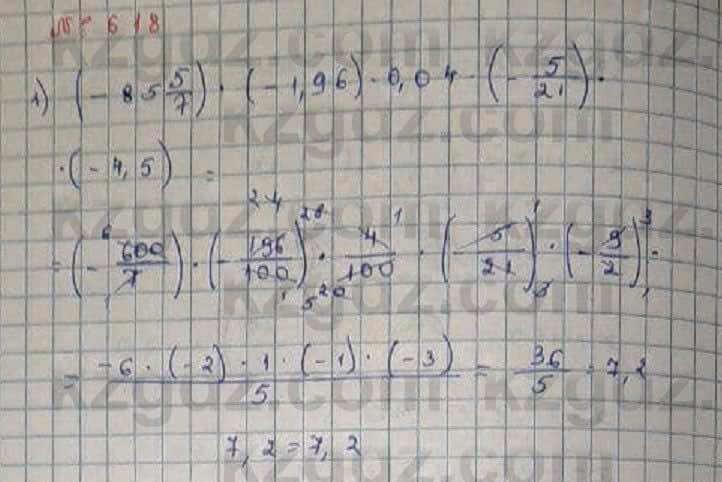 № 618
1) (-85 5/7) · (-1,96) · 0,04 · (- 5/21) ·
· (-4,5) =
= (- 600/7) · (- 196/100) · 4/100 · (- 5/21) · (- 9/2) =
= -6 · (-2) · 1 · (-1) · (-3) / 5 = 36/5 = 7,2
7,2 = 7,2
kzgdz.com